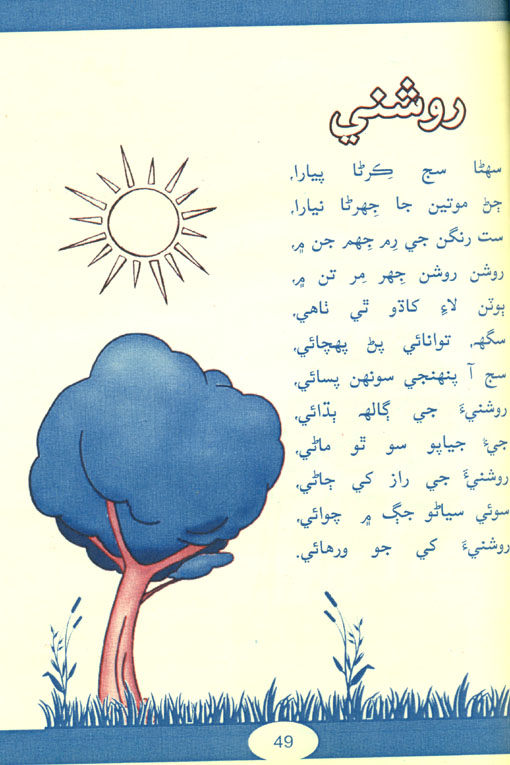 روشني
سهڻا سج ڪِرڻا پيارا،
ڄڻ موتين جا جِهرڻا نيارا،
ست رنگن جي رِم جِهم جن ۾،
روشن روشن جِهر مِر تن ۾،
ٻوٽن لاءِ کاڌو ٿي ٺاهي،
سگهه، توانائي پڻ پهچائي،
سج آ پنهنجي سونهن پسائي،
روشنيءَ جي ڳالهه ٻڌائي،
جيءَ جياپو سو ٿو ماڻي،
روشنيءَ جي راز کي ڄاڻي،
سوئي سياڻو جڳ ۾ چوائي،
روشنيءَ کي جو ورهائي.
49